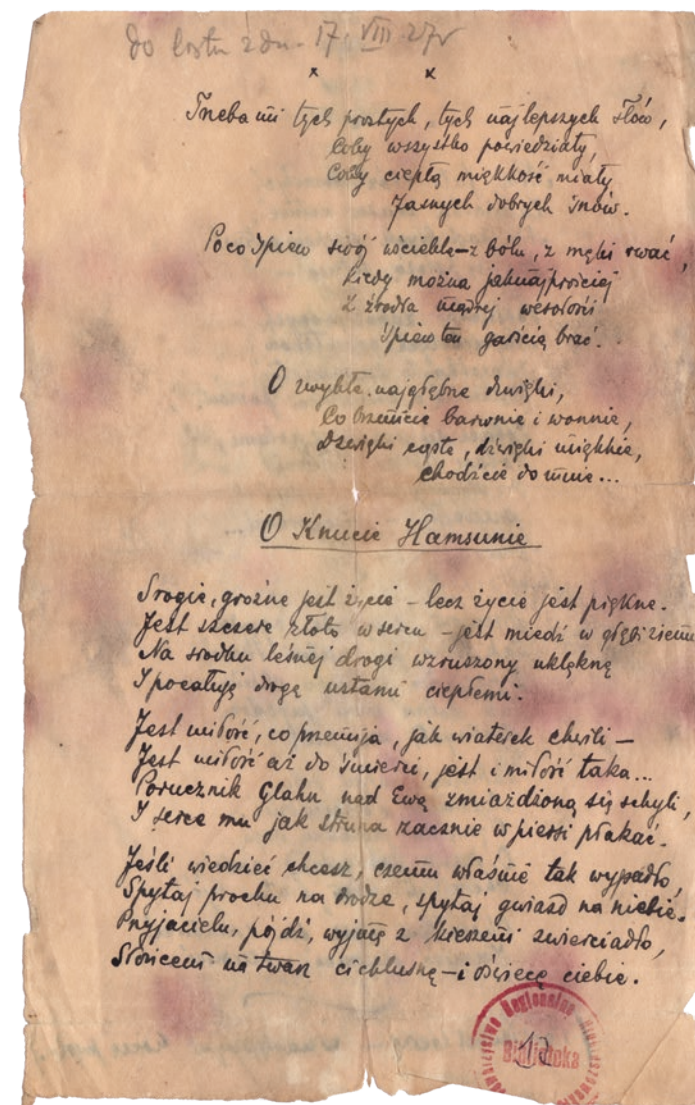 do listu z dn. 17. VIII 27r
x x
Trzeba mi tych prostych, tych najlepszych słów,
Coby wszystko powiedziały,
Coby ciepłą miękkość miały
Jasnych dobrych snów.
Poco śpiew swój wściekle – z bólu, z męki rwać,
Kiedy można jaknajprościej
Z źródła mądrej wesołości
Śpiew ten garścią brać.
O zwykłe, najgłębsze dźwięki,
Co brzmicie barwnie i wonnie,
Dźwięki częste, dźwięki miękkie,
chodźcie do mnie...
O Knucie Hamsunie
Srogie, groźne jest życie – lecz życie jest piękne.
Jest szczere złoto w sercu – jest miedź w głębi ziemi
Na środku leśnej drogi wzruszony uklęknę
I pocałuję drogę ustami ciepłemi.
Jest miłość, co przemija, jak wiaterek chwili –
Jest miłość aż do śmierci, jest i miłość taka...
Porucznik Glahn nad Ewą zmiażdżoną się schyli,
I serce mu jak struna zacznie w piersi płakać.
Jeśli wiedzieć chcesz, czemu właśnie tak wypadło,
Spytaj prochu na drodze, spytaj gwiazd na niebie.
Przyjacielu, pójdź, wyjmę z kieszeni zwierciadło,
Słońcem na twarz ci chlusnę – i oświecę ciebie.
Regionalne
Biblioteka
12